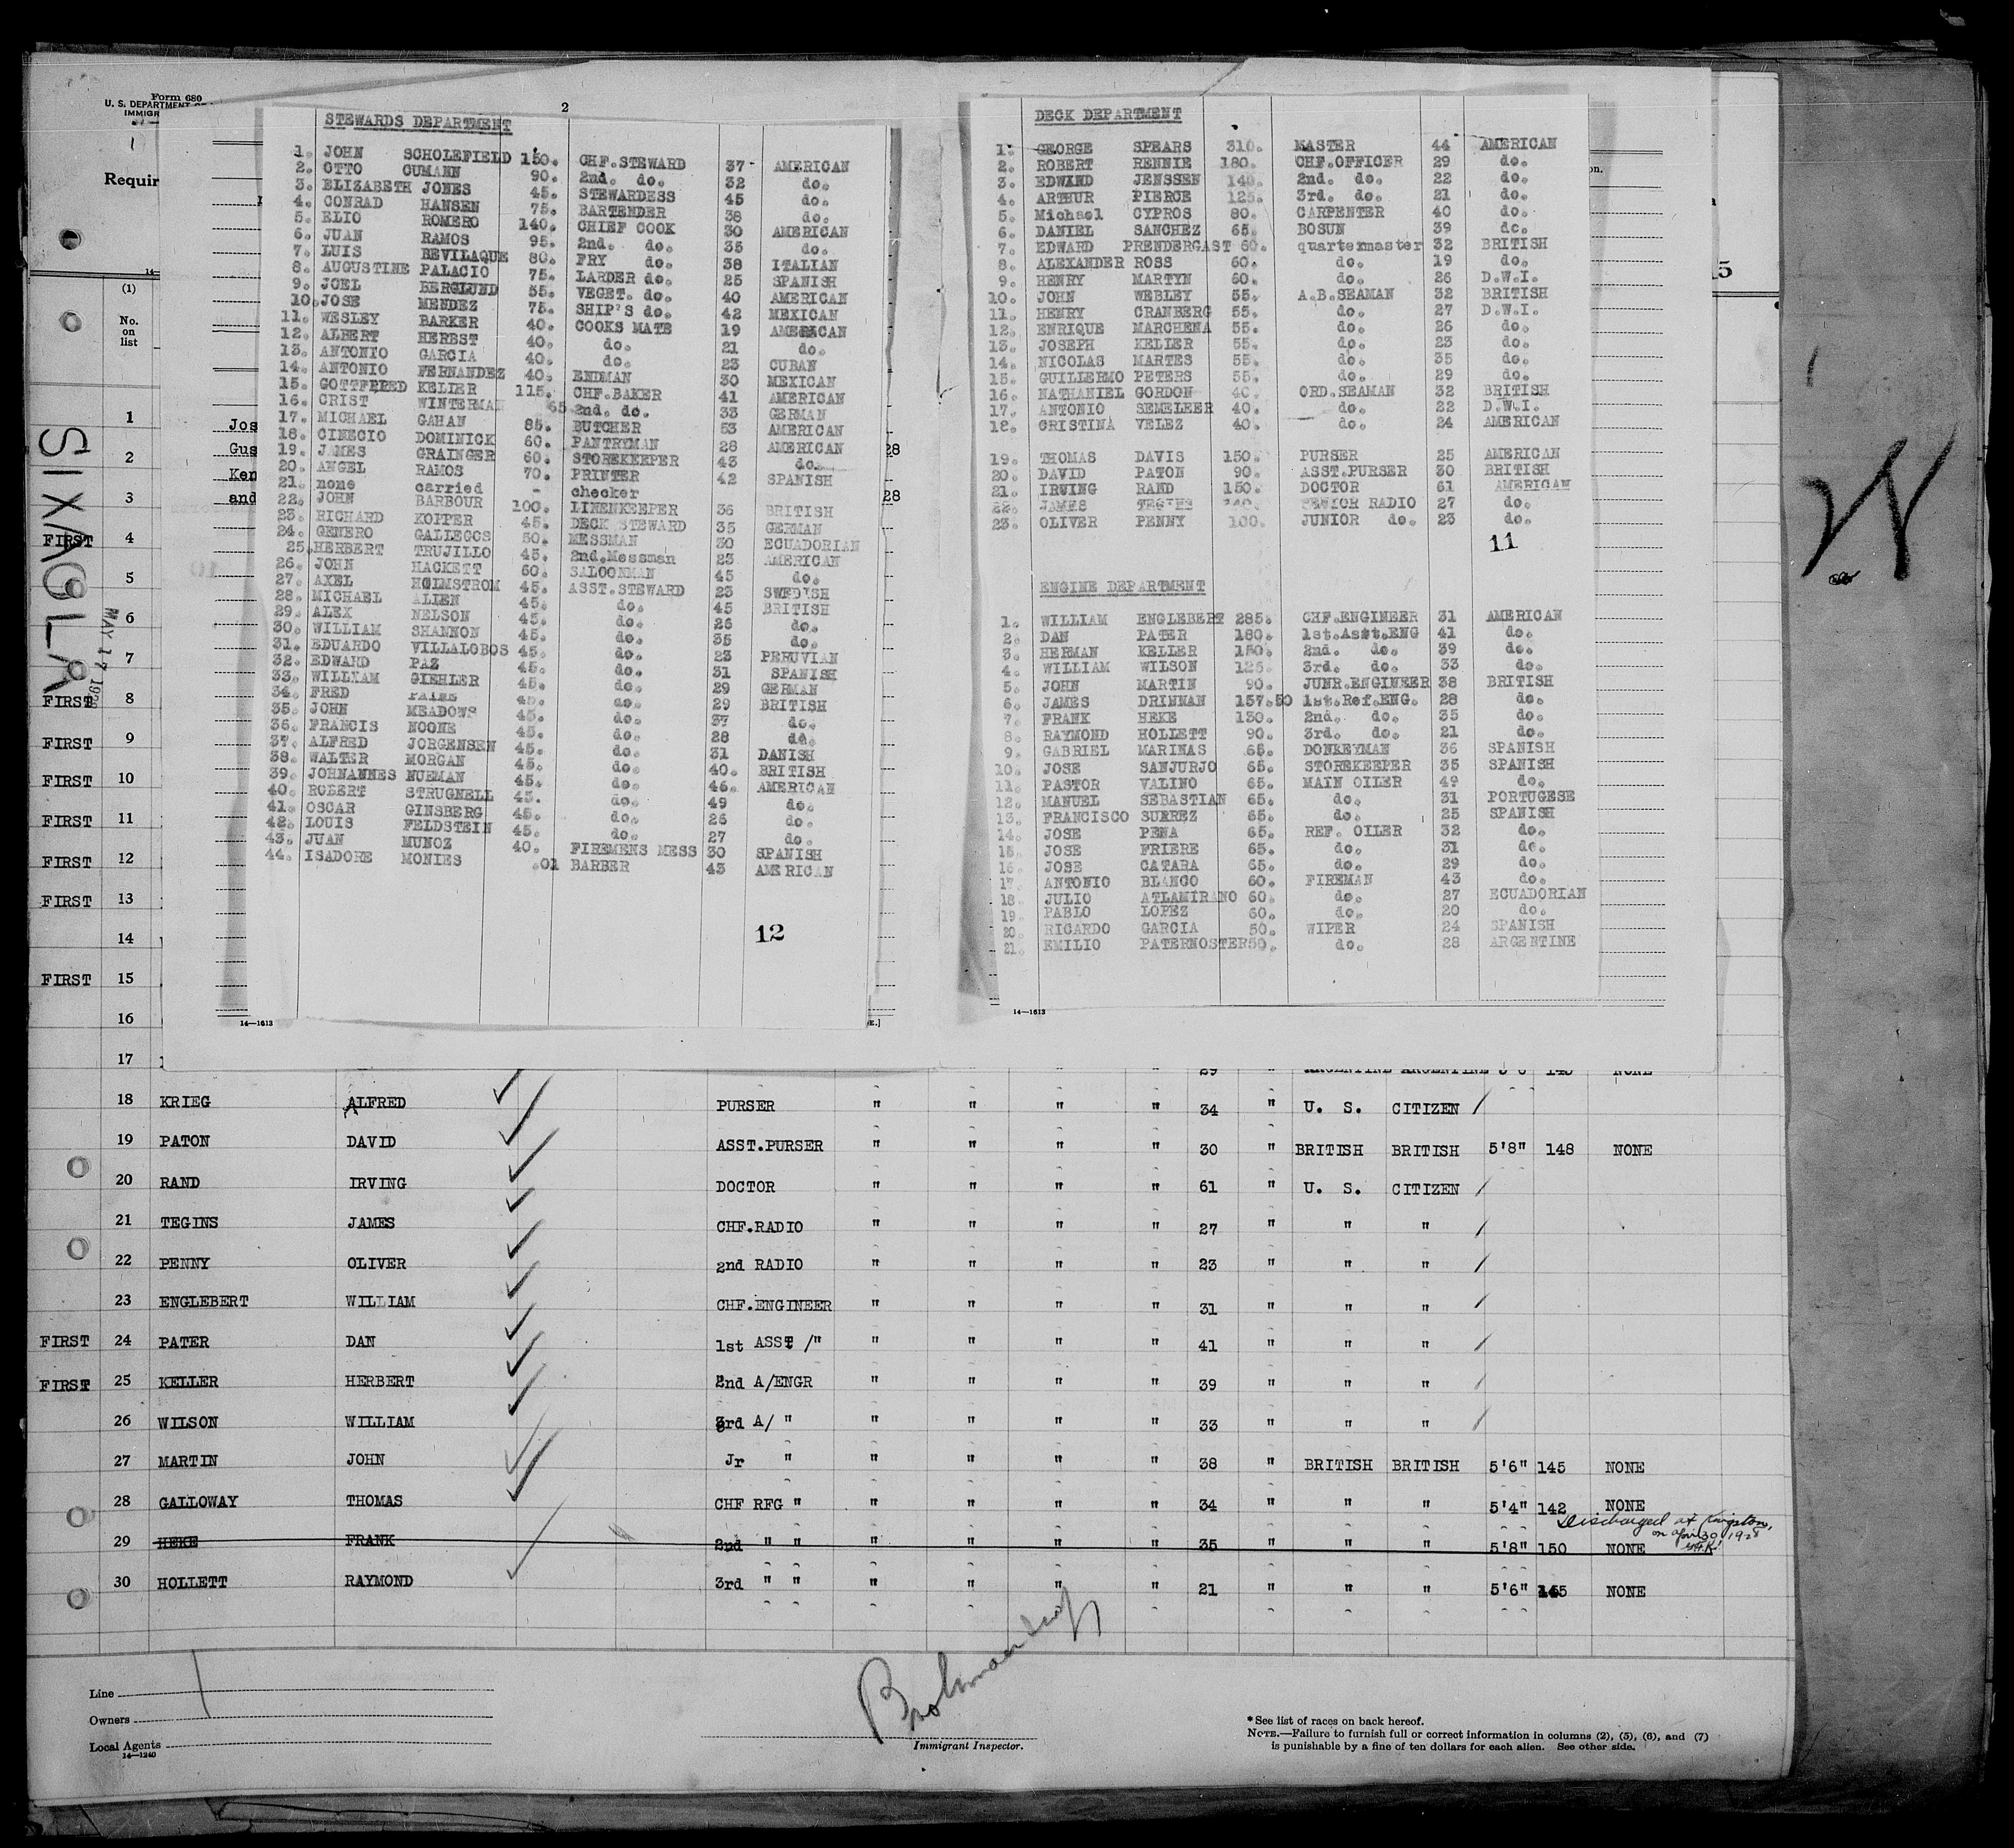 Form 680
U. S. DEPARTMENT
Requir
(1)
No.
on
list
SIXAOLA
MAY 17
2
STEWARDS DEPARTMENT
1. JOHN SCHOLEFIELD 150. CHF.STEWARD 37 AMERICAN
2. OTTO CUMANN 90. 2nd. do. 32 do.
3. ELIZABETH JONES 45. STEWARDESS 45 do.
4. CONRAD HANSEN 75. BARTENDER 38 do.
5. ELIO ROMERO 140. CHIEF COOK 30 AMERICAN
6. JUAN RAMOS 95. 2nd. do. 35 do.
7. LUIS BEVILAQUE 80. FRY do. 38 ITALIAN
8. AUGUSTINE PALACIO 75. LARDER do. 25 SPANISH
9. JOEL BERGLUND 55. VEGET. do. 40 AMERICAN
10. JOSE MENDEZ 75. SHIP'S do. 42 MEXICAN
11. WESLEY BARKER 40. COOKS MATE 19 AMERICAN
12. ALBERT HERBST 40. do. 21 do.
13. ANTONIO GARCIA 40. do. 23 CUBAN
14. ANTONIO FERNANDEZ 40. ENDMAN 30 MEXICAN
15. GOTTFRED KELLER 115. CHF.BAKER 41 AMERICAN
16. CRIST WINTERMAN 65 2nd. do. 33 GERMAN
17. MICHAEL GAHAN 85. BUTCHER 53 AMERICAN
18. CINECIO DOMINICK 60. PANTRYMAN 28 AMERICAN
19. JAMES GRAINGER 60. STOREKEEPER 43 do.
20. ANGEL RAMOS 70. PRINTER 42 SPANISH
21. none carried - checker
22. JOHN BARBOUR 100. LINENKEEPER 36 BRITISH
23. RICHARD KOPPER 45. DECK STEWARD 35 GERMAN
24. GENERO GALLEGOS 50. MESSMAN 30 ECUADORIAN
25. HERBERT TRUJILLO 45. 2nd.Messman 23 AMERICAN
26. JOHN HACKETT 60. SALOONMAN 45 do.
27. AXEL HOLMSTROM 45. ASST.STEWARD 23 SWEDISH
28. MICHAEL ALIEN 45. do. 45 BRITISH
29. ALEX NELSON 45. do. 26 do.
30. WILLIAM SHANNON 45. do. 35 do.
31. EDUARDO VILLALOBOS 45. do. 23 PERUVIAN
32. EDWARD PAZ 45. do. 31 SPANISH
33. WILLYAM GIEHLER 45. do. 29 GERMAN
34. FRED 45. do. 29 BRITISH
35. JOHN MEADOWS 45. do. 37 do.
36. FRANCIS NOONE 45. do. 28 do.
37. ALFRED JORGENSEN 45. do. 31 DANISH
38. WALTER MORGAN 45. do. 40. BRITISH
39. JOHNANNES NUEMAN 45. do. 46. AMERICAN
40. ROBERT STRUGNELL 45. do. 49 do.
41. OSCAR GINSBERG 45. do. 26 do.
42. LOUIS FELDSTEIN 45. do. 27 do.
43. JUAN MUNOZ 40. FIREMENS MESS 30 SPANISH
44. ISADORE MONIES .01 BARBER 43 AMERICAN
12
14—1613
DECK DEPARTMENT
1. GEORGE SPEARS 310. MASTER 44 AMERICAN
2. ROBERT RENNIE 180. CHF.OFFICER 29 do.
3. EDWARD JENSSEN 140. 2nd. do. 22 do.
4. ARTHUR PIERCE 125. 3rd. do. 21 do.
5. Michael CYPROS 80. CARPENTER 40 do.
6. DANIEL SANCHEZ 65. BOSUN 39 do.
7. EDWARD PRENDERGAST 60. quartermaster 32 BRITISH
8. ALEXANDER ROSS 60. do. 19 do.
9. HENRY MARTYN 60. do. 26 D.W.I.
10. JOHN WEBLEY 55. A.B.SEAMAN 32 BRITISH
11. HENRY CRANBERG 55. do. 27 D.W.I.
12. ENRIQUE MARCHENA 55. do. 26 do.
13. JOSEPH KELLER 55. do. 23 do.
14. NICOLAS MARTES 55. do. 35 do.
15. GUILLERMO PETERS 55. do. 29 do.
16. NATHANIEL GORDON 40. ORD.SEAMAN 32 BRITISH
17. ANTONIO SEMELEER 40. do. 22 D.W.I.
18. CRISTINA VELEZ 40. do. 24 AMERICAN
19. THOMAS DAVIS 150. PURSER 25 AMERICAN
20. DAVID PATON 90. ASST.PURSER 30 BRITISH
21. IRVING RAND 150. DOCTOR 61 AMERICAN
22. JAMES SENIOR RADIO 27 do.
23. OLIVER PENNY 100. JUNIOR do. 23 do.
11
ENGINE DEPARTMENT
1. WILLIAM ENGLEBERT 285. CHF.ENGINEER 31 AMERICAN
2. DAN PATER 180. 1st.Asst.ENG 41 do.
3. HERMAN KELLER 150. 2nd. do. 39 do.
4. WILLIAM WILSON 125. 3rd. do. 33 do.
5. JOHN MARTIN 90. JUNR.ENGINEER 38 BRITISH
6. JAMES DRINNAN 157.50 1st.Ref.ENG. 28 do.
7. FRANK HEKE 130. 2nd. do. 35 do.
8. RAYMOND HOLLETT 90. 3rd. do. 21 do.
9. GABRIEL MARINAS 65. DONKEYMAN 36 SPANISH
10. JOSE SANJURJO 65. STOREKEEPER 35 SPANISH
11. PASTOR VALINO 65. MAIN OILER 49 do.
12. MANUEL SEBASTIAN 65. do. 31 PORTUGESE
13. FRANCISCO SUEREZ 65. do. 25 SPANISH
14. JOSE PENA 65. REF. OILER 32 do.
15. JOSE FRIERE 65. do. 31 do.
16. JOSE CATARA 65. do. 29 do.
17. ANTONIO BLANCO 60. FIREMAN 43 do.
18. JULIO ATLAMIRANO 60. do. 27 ECUADORIAN
19. PABLO LOPEZ 60. do. 20 do.
20. RICARDO GARCIA 50. WIPER 24 SPANISH
21. EMILIO PATERNOSTER 50. do. 28 ARGENTINE
14—1613
1 Jos
2 Gus 28
Ken
3 and 28
FIRST 4
5
6
7
FIRST 8
FIRST 9
FIRST 10
FIRST 11
FIRST 12
FIRST 13
14
FIRST 15
16
17 29 " ARGENTINE ARGENTINE NONE
18 KRIEG ALFRED PURSER " " " " 34 " U. S. CITIZEN
19 PATON DAVID ASST.PURSER " " " " 30 " BRITISH BRITISH 5'8" 148 NONE
20 RAND IRVING DOCTOR " " " " 61 " U. S. CITIZEN
21 TEGINS JAMES CHF.RADIO " " " " 27 " " "
22 PENNY OLIVER 2nd RADIO " " " " 23 " " "
23 ENGLEBERT WILLIAM CHF.ENGINEER " " " " 31 " " "
FIRST 24 PATER DAN 1st ASST /" " " " " 41 " " "
FIRST 25 KELLER HERBERT 2nd A/ENGR " " " " 39 " " "
26 WILSON WILLIAM 3rd A/ " " " " " 33 " " "
27 MARTIN JOHN Jr " " " " " 38 " BRITISH BRITISH 5'6" 145 NONE
28 GALLOWAY THOMAS CHF RFG " " " " " 34 " " " 5'4" 142 NONE
Discharged at Kingston,
on April 30 1928
29 HEKE FRANK 2nd " " " " " " 35 " " " 5'8" 150 NONE
30 HOLLETT RAYMOND 3rd " " " " " " 21 " " " 5'6" 145 NONE
Line
Owners
Local Agents
14—1240
Immigrant Inspector.
*See list of races on back hereof.
NOTE.—Failure to furnish full or correct information in columns (2), (5), (6), and (7)
is punishable by a fine of ten dollars for each alien. See other side.